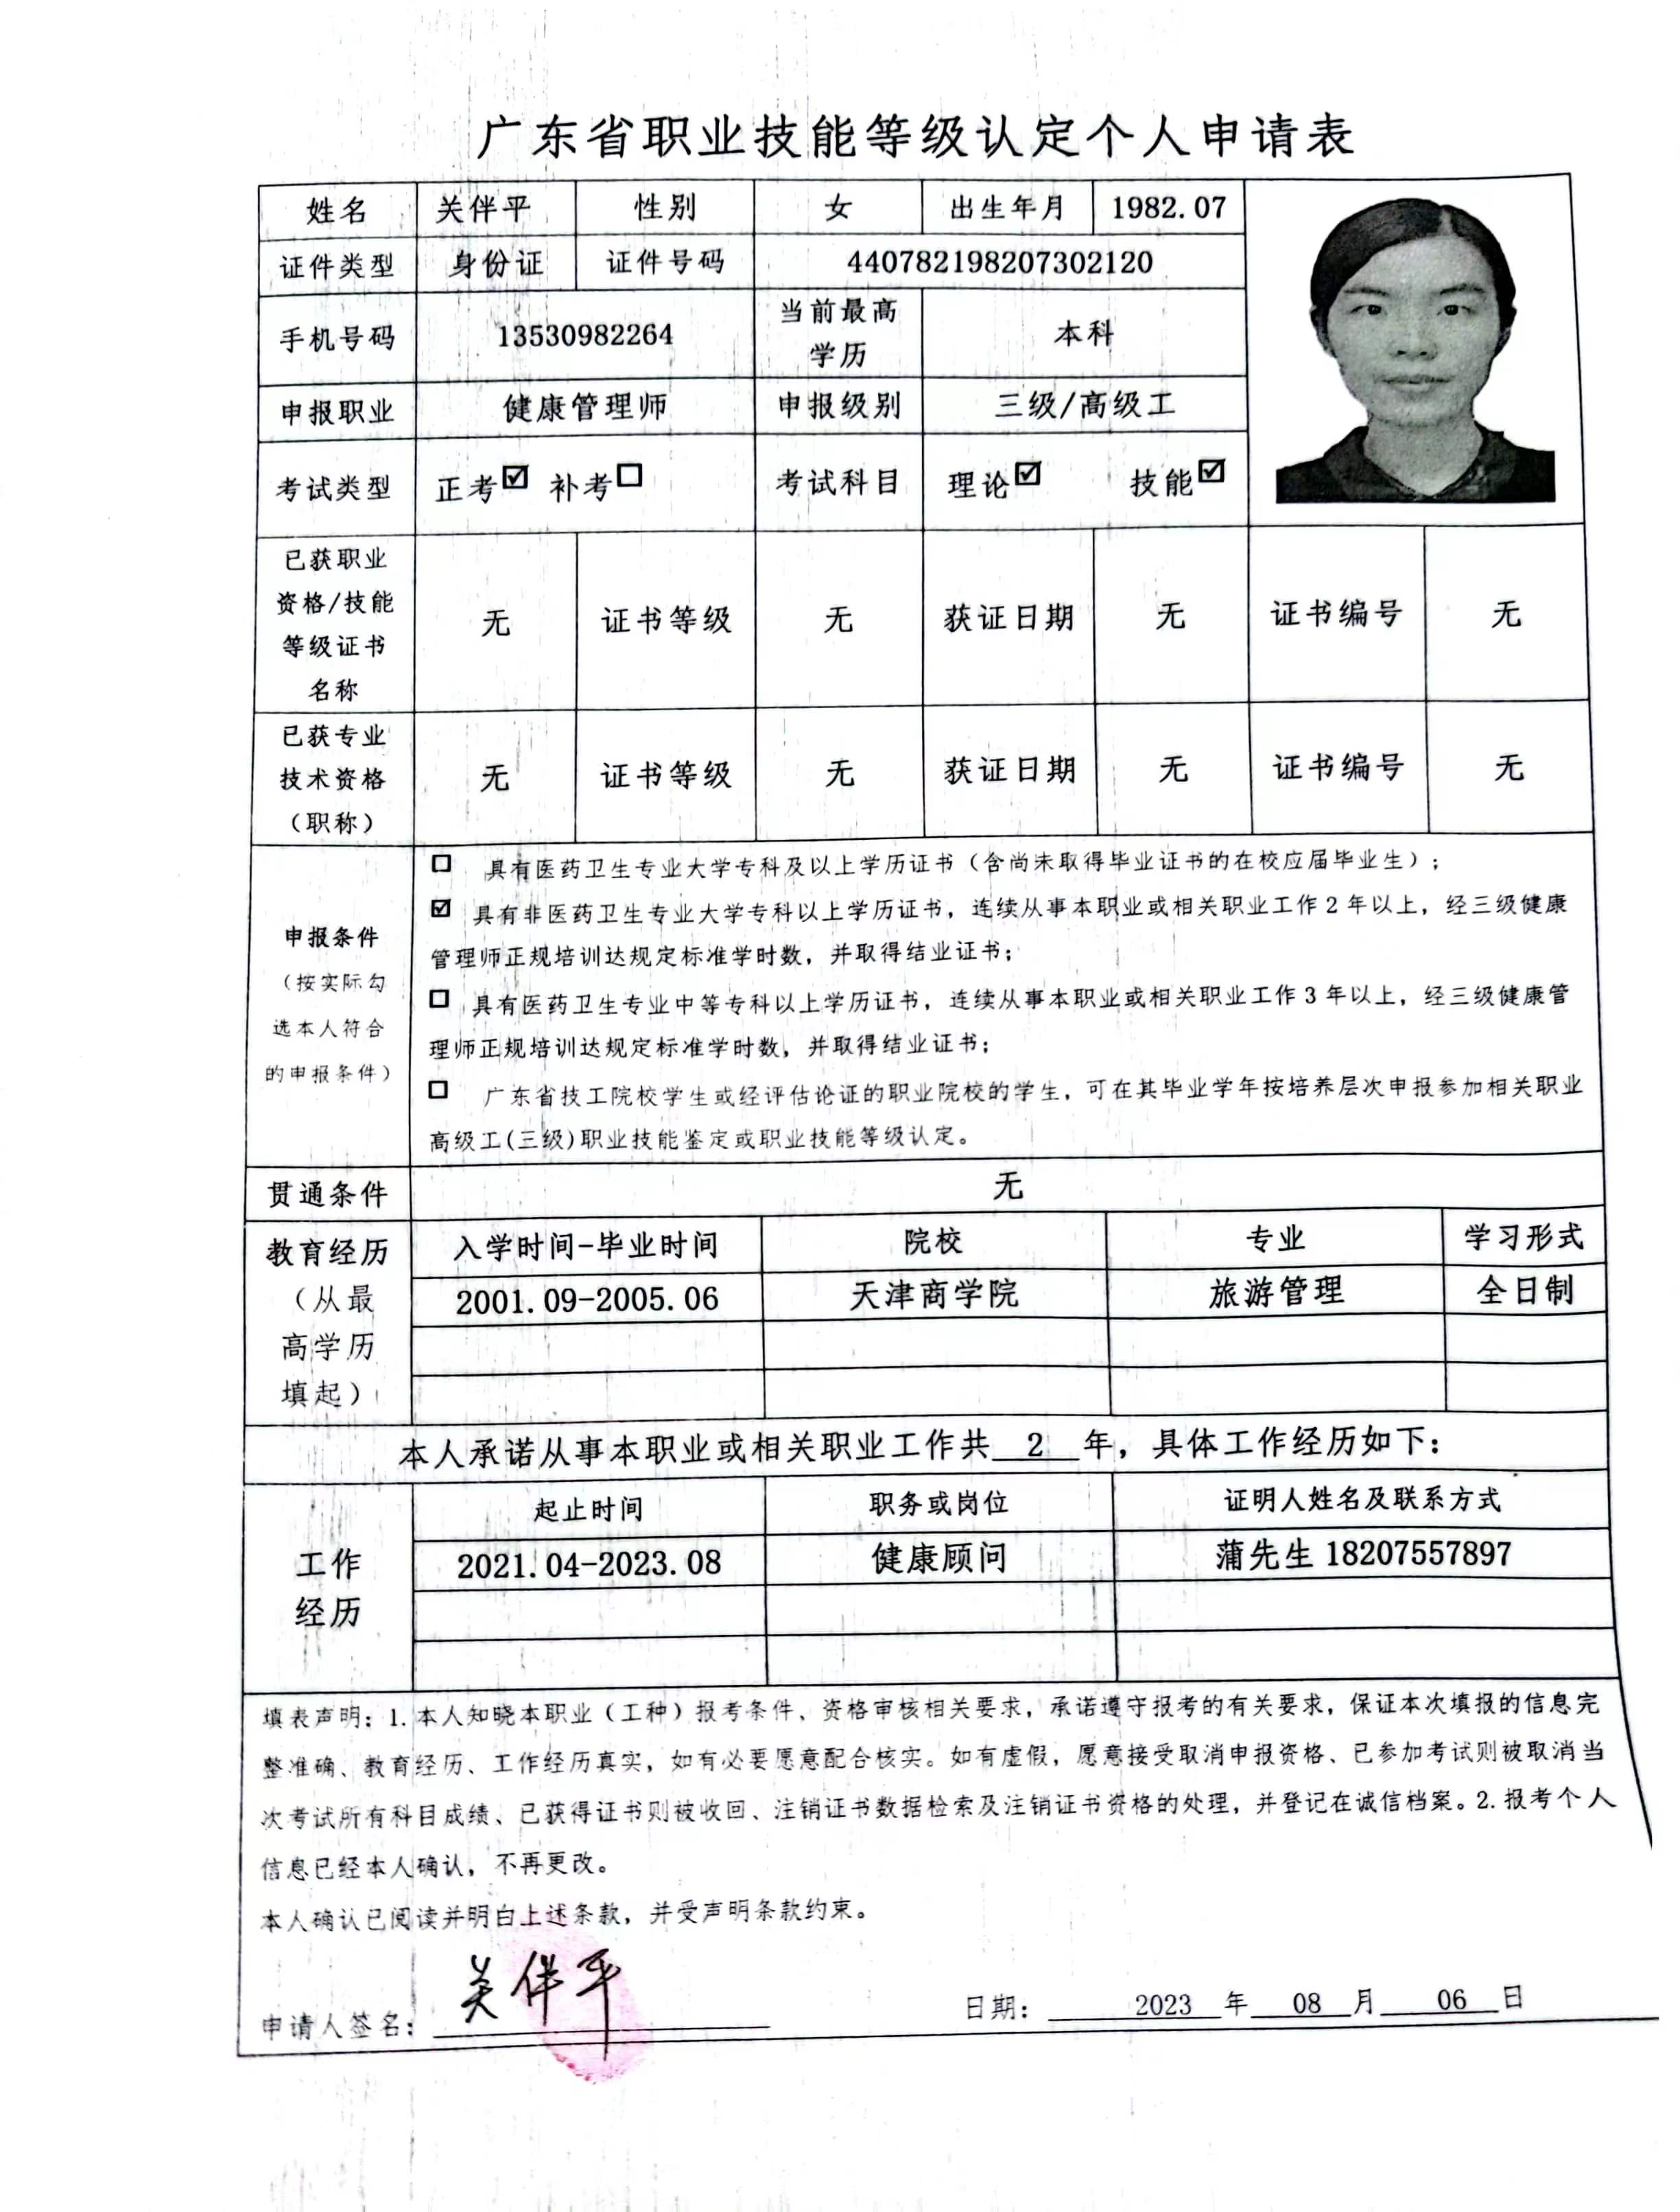 广东省职业技能等级认定个人申请表
姓名 关伴平 性别 女 出生年月 1982.07
证件类型 身份证 证件号码 440782198207302120
手机号码 13530982264 当前最高学历 本科
申报职业 健康管理师 申报级别 三级/高级工
考试类型 正考☑ 补考☐ 考试科目 理论☑ 技能☑
已获职业
资格/技能
等级证书
名称
无 证书等级 无 获证日期 无 证书编号 无
已获专业
技术资格
（职称）
无 证书等级 无 获证日期 无 证书编号 无
申报条件
（按实际勾
选本人符合
的申报条件）
☐ 具有医药卫生专业大学专科及以上学历证书（含尚未取得毕业证书的在校应届毕业生）；
☑ 具有非医药卫生专业大学专科以上学历证书，连续从事本职业或相关职业工作2年以上，经三级健康
管理师正规培训达规定标准学时数，并取得结业证书；
☐ 具有医药卫生专业中等专科以上学历证书，连续从事本职业或相关职业工作3年以上，经三级健康管
理师正规培训达规定标准学时数，并取得结业证书；
☐ 广东省技工院校学生或经评估论证的职业院校的学生，可在其毕业学年按培养层次申报参加相关职业
高级工(三级)职业技能鉴定或职业技能等级认定。
贯通条件 无
教育经历
（从最
高学历
填起）
入学时间-毕业时间 院校 专业 学习形式
2001.09-2005.06 天津商学院 旅游管理 全日制
本人承诺从事本职业或相关职业工作共 2 年，具体工作经历如下：
工作
经历
起止时间 职务或岗位 证明人姓名及联系方式
2021.04-2023.08 健康顾问 蒲先生 18207557897
填表声明：1.本人知晓本职业（工种）报考条件、资格审核相关要求，承诺遵守报考的有关要求，保证本次填报的信息完
整准确、教育经历、工作经历真实，如有必要愿意配合核实。如有虚假，愿意接受取消申报资格、已参加考试则被取消当
次考试所有科目成绩、已获得证书则被收回、注销证书数据检索及注销证书资格的处理，并登记在诚信档案。2.报考个人
信息已经本人确认，不再更改。
本人确认已阅读并明白上述条款，并受声明条款约束。
申请人签名：关伴平 日期： 2023 年 08 月 06 日